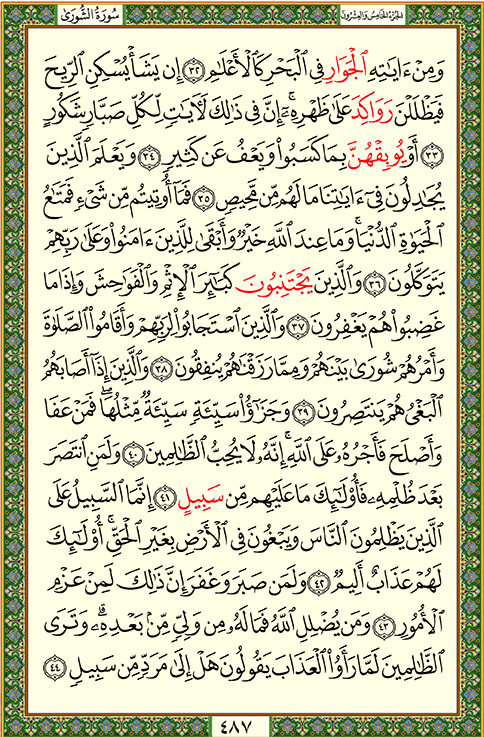 الجزء الخامس والعشرون
سُورَةُ الشُّورَىٰ
وَمِنْ ءَايَٰتِهِ ٱلْجَوَارِ فِي ٱلْبَحْرِ كَٱلْأَعْلَٰمِ ۝٣٢ إِن يَشَأْ يُسْكِنِ ٱلرِّيحَ
فَيَظْلَلْنَ رَوَاكِدَ عَلَىٰ ظَهْرِهِۦٓ ۚ إِنَّ فِي ذَٰلِكَ لَءَايَٰتٍ لِّكُلِّ صَبَّارٍ شَكُورٍ
۝٣٣ أَوْ يُوبِقْهُنَّ بِمَا كَسَبُوا۟ وَيَعْفُ عَن كَثِيرٍ ۝٣٤ وَيَعْلَمَ ٱلَّذِينَ
يُجَٰدِلُونَ فِىٓ ءَايَٰتِنَا مَا لَهُم مِّن مَّحِيصٍ ۝٣٥ فَمَآ أُوتِيتُم مِّن شَىْءٍ فَمَتَٰعُ
ٱلْحَيَوٰةِ ٱلدُّنْيَا ۖ وَمَا عِندَ ٱللَّهِ خَيْرٌ وَأَبْقَىٰ لِلَّذِينَ ءَامَنُوا۟ وَعَلَىٰ رَبِّهِمْ
يَتَوَكَّلُونَ ۝٣٦ وَٱلَّذِينَ يَجْتَنِبُونَ كَبَٰٓئِرَ ٱلْإِثْمِ وَٱلْفَوَٰحِشَ وَإِذَا مَا
غَضِبُوا۟ هُمْ يَغْفِرُونَ ۝٣٧ وَٱلَّذِينَ ٱسْتَجَابُوا۟ لِرَبِّهِمْ وَأَقَامُوا۟ ٱلصَّلَوٰةَ
وَأَمْرُهُمْ شُورَىٰ بَيْنَهُمْ وَمِمَّا رَزَقْنَٰهُمْ يُنفِقُونَ ۝٣٨ وَٱلَّذِينَ إِذَآ أَصَابَهُمُ
ٱلْبَغْىُ هُمْ يَنتَصِرُونَ ۝٣٩ وَجَزَٰٓؤُا۟ سَيِّئَةٍ سَيِّئَةٌ مِّثْلُهَا ۖ فَمَنْ عَفَا
وَأَصْلَحَ فَأَجْرُهُۥ عَلَى ٱللَّهِ ۚ إِنَّهُۥ لَا يُحِبُّ ٱلظَّٰلِمِينَ ۝٤٠ وَلَمَنِ ٱنتَصَرَ
بَعْدَ ظُلْمِهِۦ فَأُو۟لَٰٓئِكَ مَا عَلَيْهِم مِّن سَبِيلٍ ۝٤١ إِنَّمَا ٱلسَّبِيلُ عَلَى
ٱلَّذِينَ يَظْلِمُونَ ٱلنَّاسَ وَيَبْغُونَ فِي ٱلْأَرْضِ بِغَيْرِ ٱلْحَقِّ ۚ أُو۟لَٰٓئِكَ
لَهُمْ عَذَابٌ أَلِيمٌ ۝٤٢ وَلَمَن صَبَرَ وَغَفَرَ إِنَّ ذَٰلِكَ لَمِنْ عَزْمِ
ٱلْأُمُورِ ۝٤٣ وَمَن يُضْلِلِ ٱللَّهُ فَمَا لَهُۥ مِن وَلِىٍّ مِّنۢ بَعْدِهِۦ ۗ وَتَرَى
ٱلظَّٰلِمِينَ لَمَّا رَأَوُا۟ ٱلْعَذَابَ يَقُولُونَ هَلْ إِلَىٰ مَرَدٍّ مِّن سَبِيلٍ ۝٤٤
٤٨٧